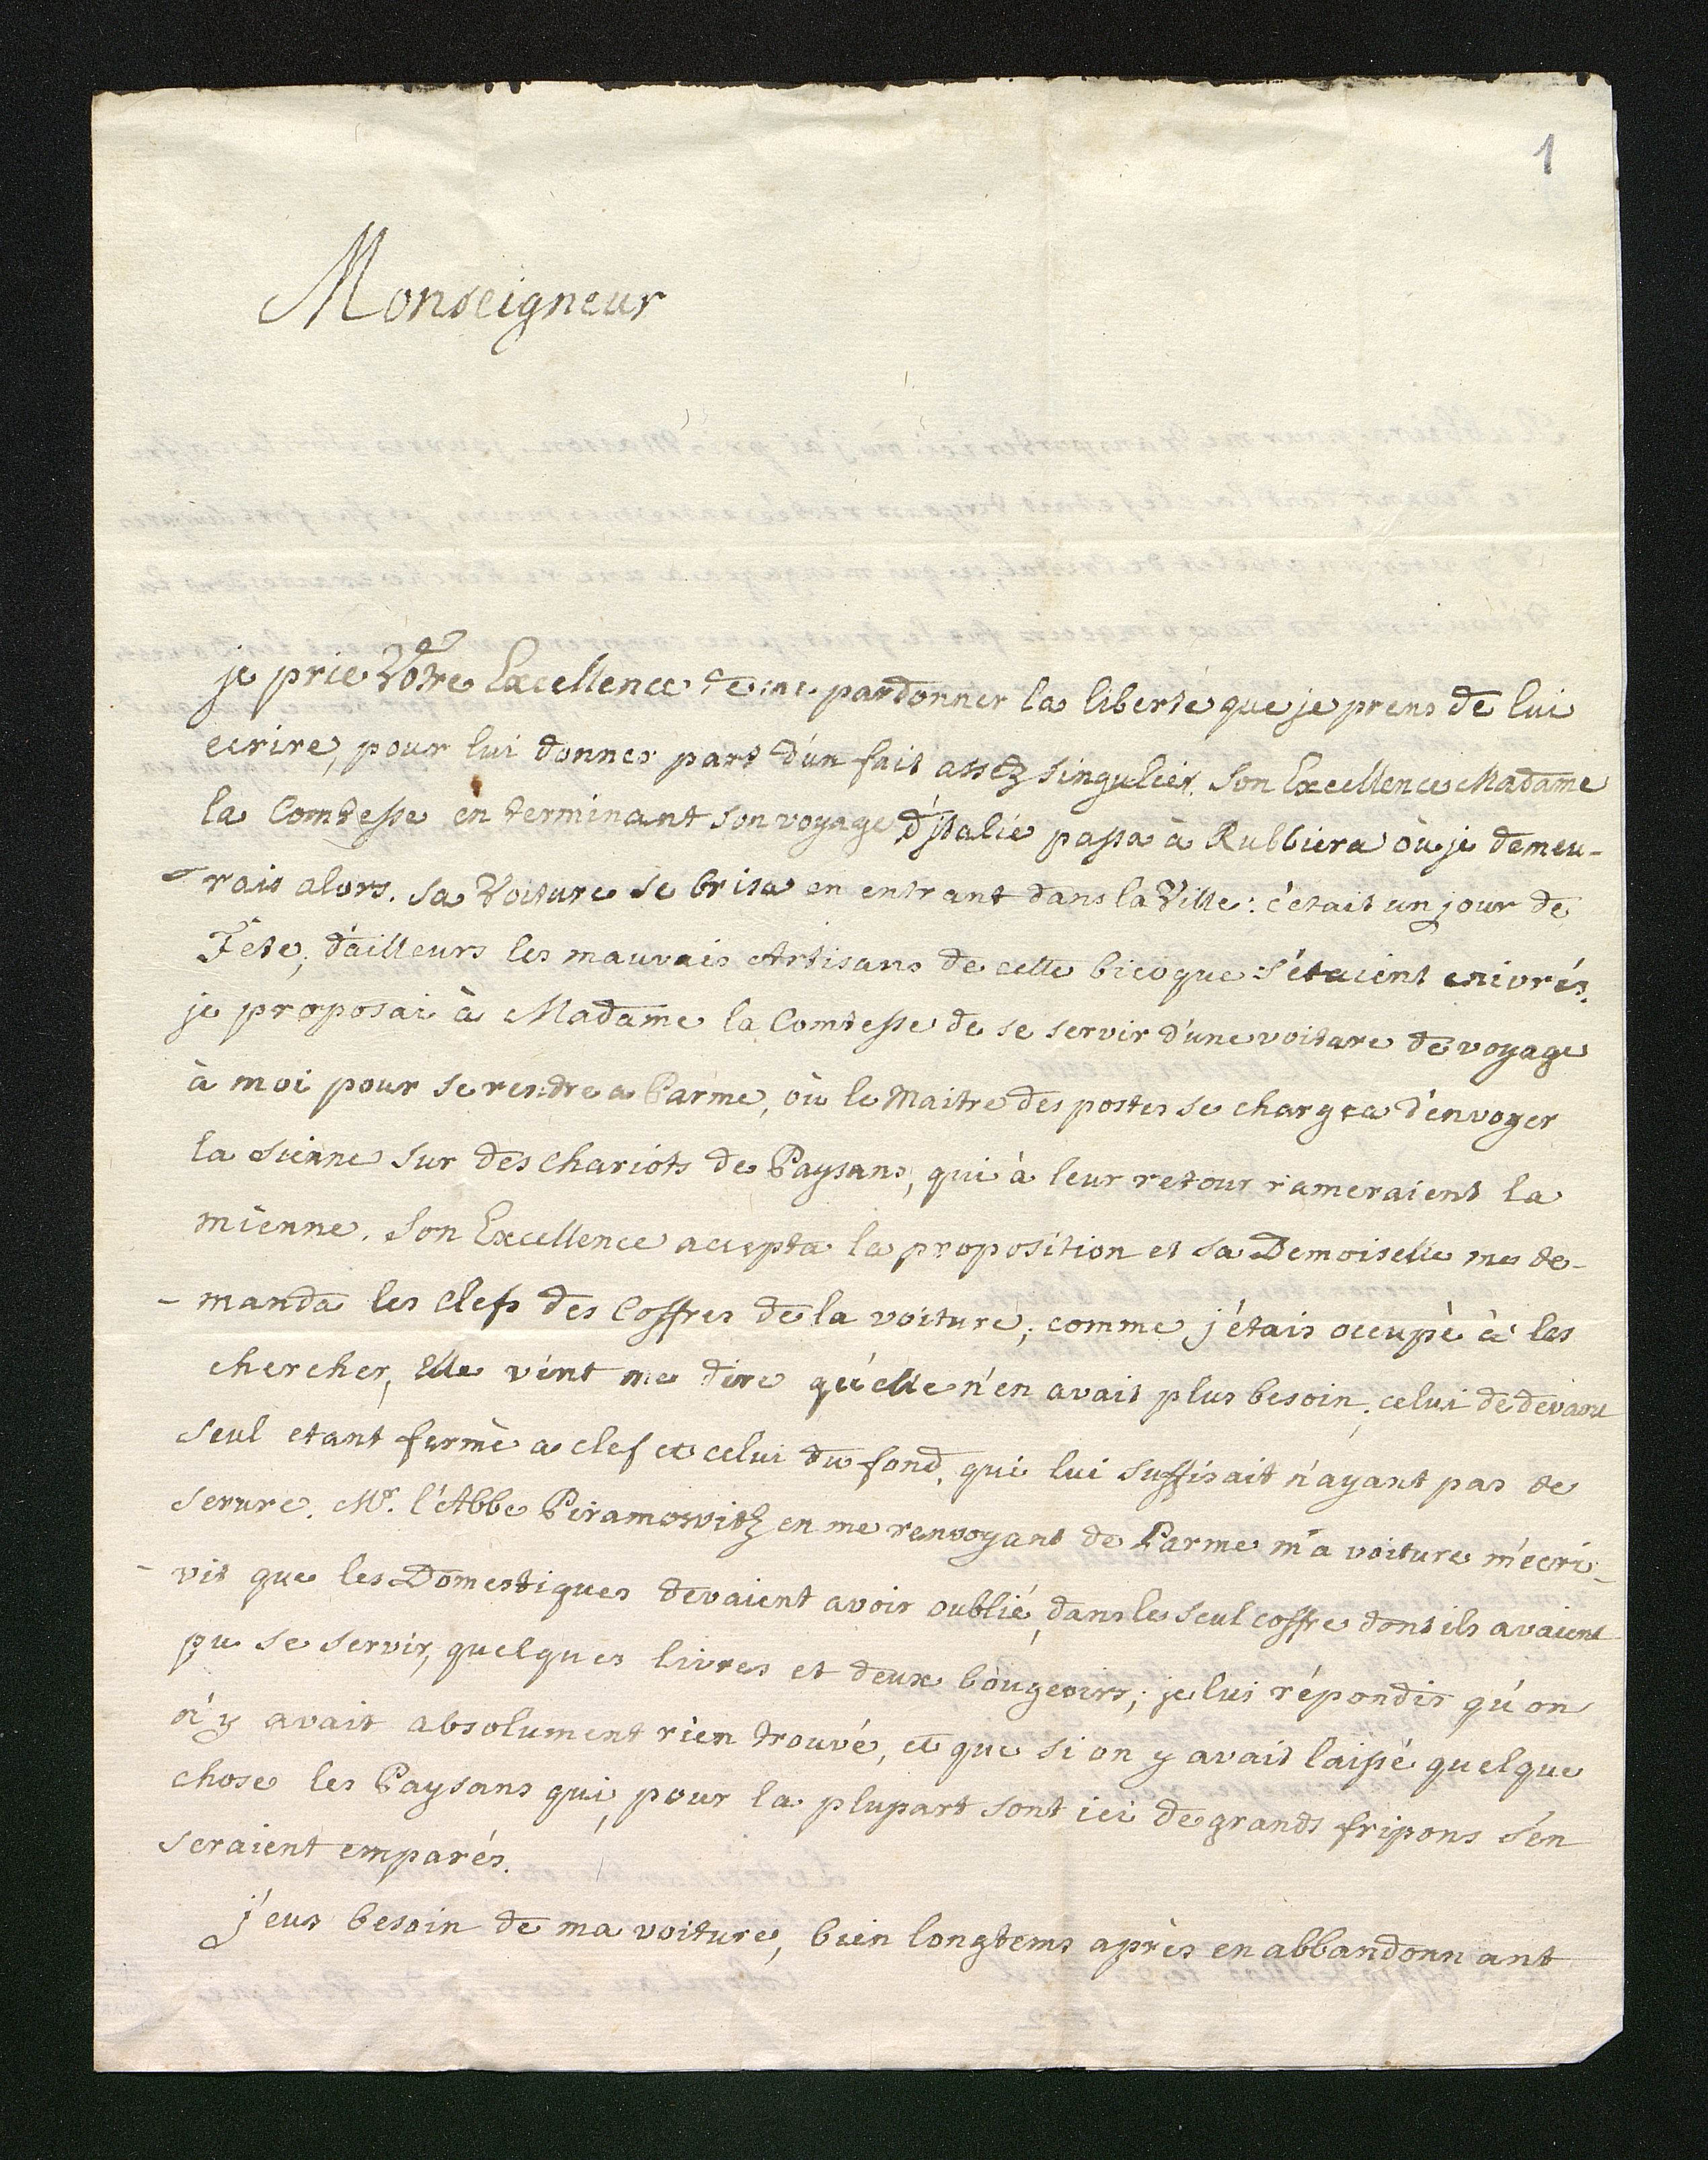 1
Monseigneur
je prie Votre Excellence de me pardonner la liberté que je prens de lui
ecrire, pour lui donner part d'un fait assez singulier. Son Excellence Madame
la Comtesse en terminant son voyage d'jtalie passa à Rubbiera où je demeu-
rais alors. sa Voiture se brisa en entrant dans la Ville: c'etait un jour de
Fete; d'ailleurs les mauvais Artisans de cette bicoque s'étaient enivrés.
je proposai à Madame la Comtesse de se servir d'une voiture de voyage
à moi pour se rendre a Parme, où le Maitre des postes se chargea d'envoyer
la sienne sur des chariots de Paysans, qui à leur retour rameraient la
mienne. Son Excellence accepta la proposition et sa Demoiselle me de-
- manda les clefs des Coffres de la voiture; comme j'étais occupè à les
chercher, Elle vint me dire qu'elle n'en avait plus besoin; celui de devant
seul etant fermè a clef et celui du fond, qui lui suffisait n'ayant pas de
serure. Mr. l'Abbe Piramowitz en me renvoyant de Parme m'a voiture m'ecri-
- vit que les Domestiques devaient avoir oublié, dans le seul coffre dont ils avaient
pu se servir, quelques livres et deux bougeoirs; je lui répondis qu'on
n'y avait absolument rien trouvé, et que si on y avait laissé quelque
chose les Paysans qui, pour la plupart sont ici de grands fripons s'en
seraient emparés.
j'eus besoin de ma voiture, bien longtems après en abbandonnant